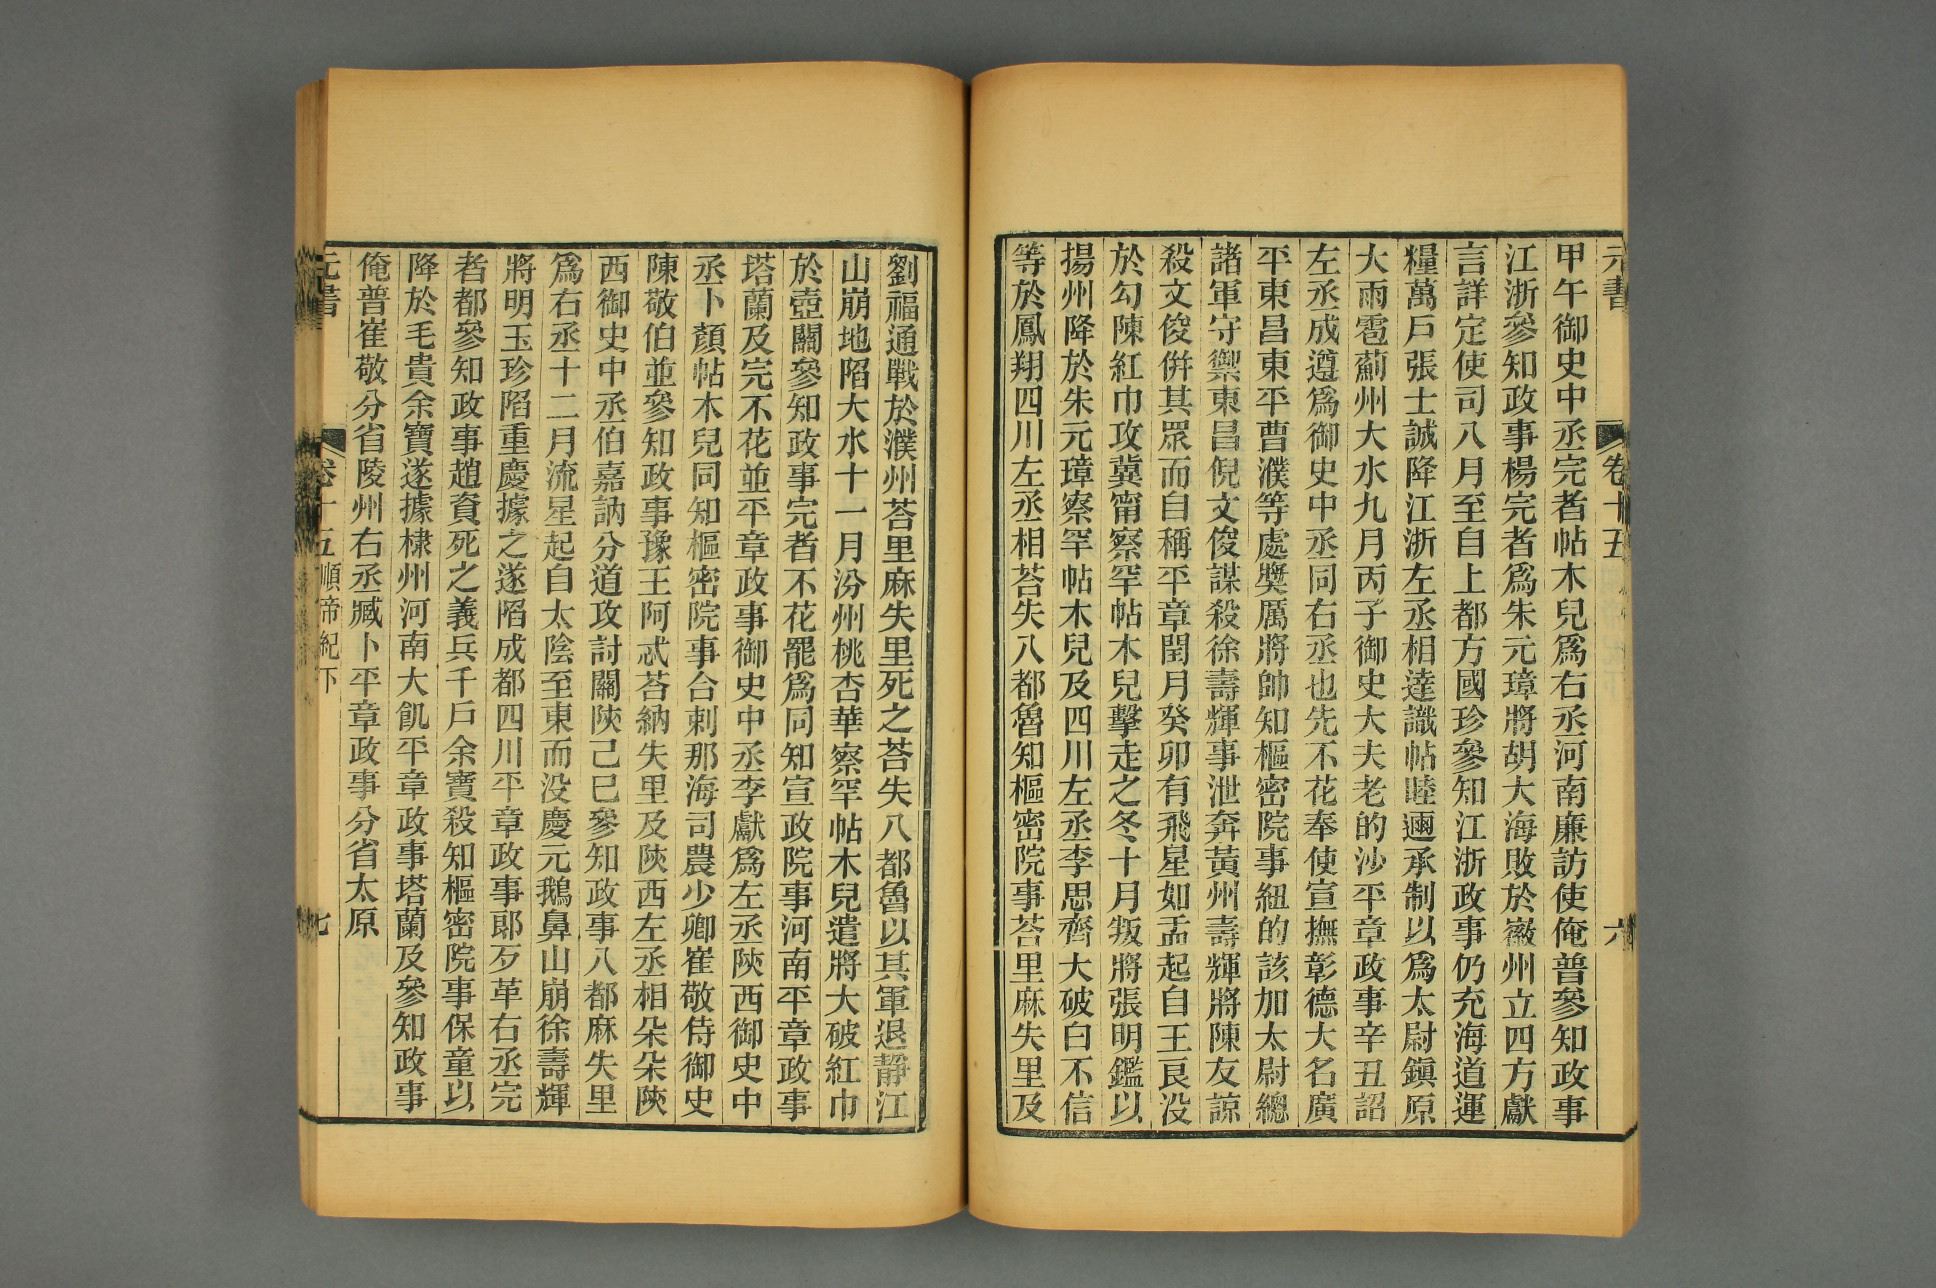 元書
卷十五
六
甲午御史中丞完者帖木兒爲右丞河南廉訪使俺普參知政事
江浙參知政事楊完者爲朱元璋將胡大海敗於徽州立四方獻
言詳定使司八月至自上都方國珍參知江浙政事仍充海道運
糧萬戶張士誠降江浙左丞相達識帖睦邇承制以爲太尉鎭原
大雨雹薊州大水九月丙子御史大夫老的沙平章政事辛丑詔
左丞成遵爲御史中丞同右丞也先不花奉使宣撫彰德大名廣
平東昌東平曹濮等處奬厲將帥知樞密院事紐的該加太尉總
諸軍守禦東昌倪文俊謀殺徐壽輝事泄奔黃州壽輝將陳友諒
殺文俊併其眾而自稱平章閏月癸卯有飛星如盂起自王良没
於勾陳紅巾攻冀甯察罕帖木兒擊走之冬十月叛將張明鑑以
揚州降於朱元璋察罕帖木兒及四川左丞李思齊大破白不信
等於鳳翔四川左丞相荅失八都魯知樞密院事荅里麻失里及
劉福通戰於濮州荅里麻失里死之荅失八都魯以其軍退靜江
山崩地陷大水十一月汾州桃杏華察罕帖木兒遣將大破紅巾
於壺關參知政事完者不花罷爲同知宣政院事河南平章政事
塔蘭及完不花並平章政事御史中丞李獻爲左丞陝西御史中
丞卜顏帖木兒同知樞密院事合剌那海司農少卿崔敬侍御史
陳敬伯並參知政事豫王阿忒荅納失里及陝西左丞相朵朵陝
西御史中丞伯嘉訥分道攻討關陝己巳參知政事八都麻失里
爲右丞十二月流星起自太陰至東而没慶元鵝鼻山崩徐壽輝
將明玉珍陷重慶據之遂陷成都四川平章政事郎歹革右丞完
者都參知政事趙資死之義兵千戶余寶殺知樞密院事保童以
降於毛貴余寶遂據棣州河南大飢平章政事塔蘭及參知政事
俺普崔敬分省陵州右丞臧卜平章政事分省太原
元書
卷十五順帝紀下
七